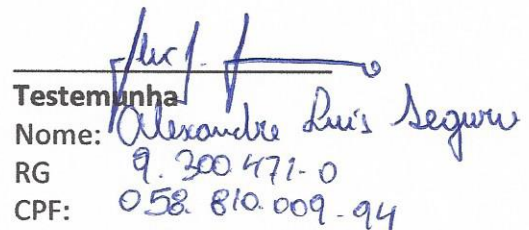 Testemunha
Nome: Alexandre Luis Seguro
RG 9.300471-0
CPF: 058.810.009-94